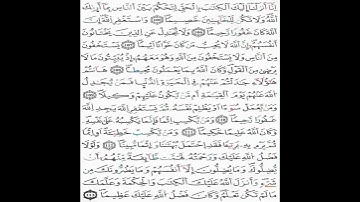 إِنَّا أَنزَلْنَا إِلَيْكَ الْكِتَٰبَ بِالْحَقِّ لِتَحْكُمَ بَيْنَ النَّاسِ بِمَا أَرَىٰكَ
اللَّهُ وَلَا تَكُن لِّلْخَائِنِينَ خَصِيمًا ١٠٥ وَاسْتَغْفِرِ اللَّهَ إِنَّ
اللَّهَ كَانَ غَفُورًا رَّحِيمًا ١٠٦ وَلَا تُجَٰدِلْ عَنِ الَّذِينَ يَخْتَانُونَ
أَنفُسَهُمْ إِنَّ اللَّهَ لَا يُحِبُّ مَن كَانَ خَوَّانًا أَثِيمًا ١٠٧ يَسْتَخْفُونَ
مِنَ النَّاسِ وَلَا يَسْتَخْفُونَ مِنَ اللَّهِ وَهُوَ مَعَهُمْ إِذْ يُبَيِّتُونَ مَا لَا
يَرْضَىٰ مِنَ الْقَوْلِ وَكَانَ اللَّهُ بِمَا يَعْمَلُونَ مُحِيطًا ١٠٨ هَٰأَنتُمْ
هَٰؤُلَاءِ جَٰدَلْتُمْ عَنْهُمْ فِي الْحَيَوٰةِ الدُّنْيَا فَمَن يُجَٰدِلُ اللَّهَ
عَنْهُمْ يَوْمَ الْقِيَٰمَةِ أَم مَّن يَكُونُ عَلَيْهِمْ وَكِيلًا ١٠٩
وَمَن يَعْمَلْ سُوءًا أَوْ يَظْلِمْ نَفْسَهُ ثُمَّ يَسْتَغْفِرِ اللَّهَ يَجِدِ اللَّهَ
غَفُورًا رَّحِيمًا ١١٠ وَمَن يَكْسِبْ إِثْمًا فَإِنَّمَا يَكْسِبُهُ عَلَىٰ نَفْسِهِ
وَكَانَ اللَّهُ عَلِيمًا حَكِيمًا ١١١ وَمَن يَكْسِبْ خَطِيئَةً أَوْ إِثْمًا
ثُمَّ يَرْمِ بِهِ بَرِيئًا فَقَدِ احْتَمَلَ بُهْتَٰنًا وَإِثْمًا مُّبِينًا ١١٢ وَلَوْلَا
فَضْلُ اللَّهِ عَلَيْكَ وَرَحْمَتُهُ لَهَمَّت طَّائِفَةٌ مِّنْهُمْ أَن
يُضِلُّوكَ وَمَا يُضِلُّونَ إِلَّا أَنفُسَهُمْ وَمَا يَضُرُّونَكَ مِن
شَيْءٍ وَأَنزَلَ اللَّهُ عَلَيْكَ الْكِتَٰبَ وَالْحِكْمَةَ وَعَلَّمَكَ
مَا لَمْ تَكُن تَعْلَمُ وَكَانَ فَضْلُ اللَّهِ عَلَيْكَ عَظِيمًا ١١٣